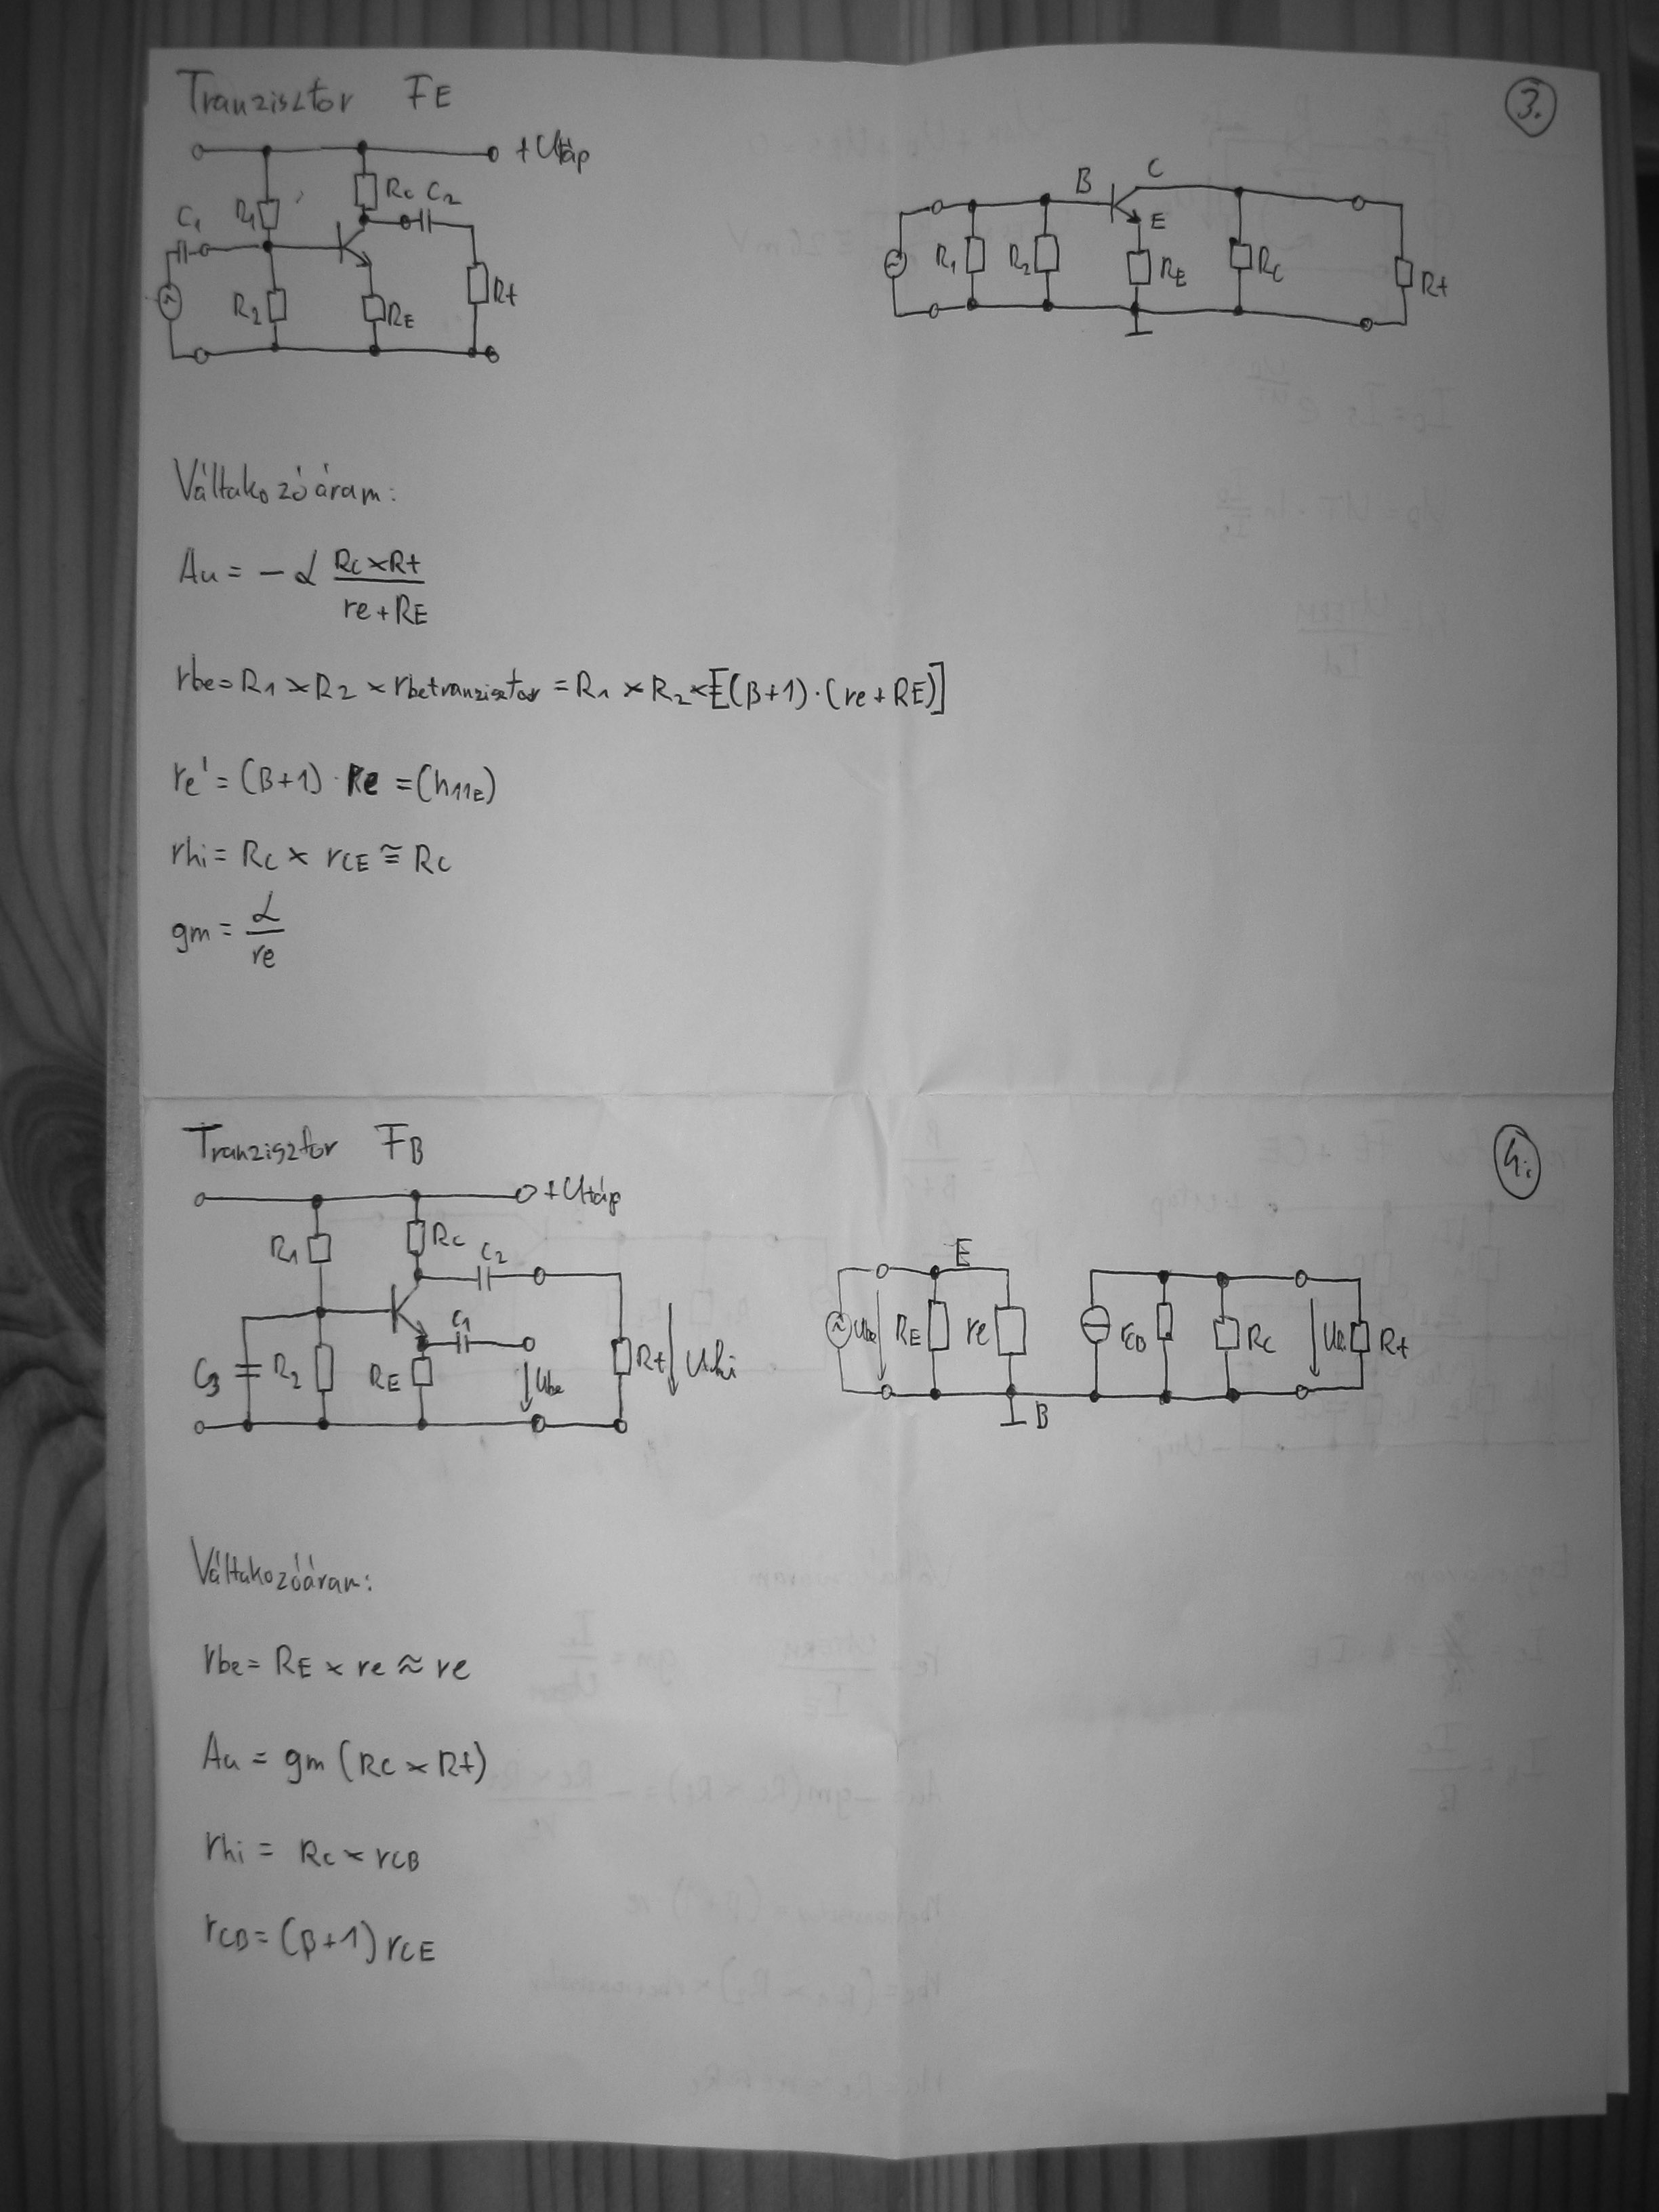 Tranzisztor FE
3.
+Utáp
RC C2
C1 R1
R2 RE Rt
B C
E
R1 R2 RE RC Rt
Váltakozóáram:
Au = - α RC×Rt / re+RE
rbe = R1 × R2 × rbetranzisztor = R1 × R2 × [(β+1)·(re+RE)]
re' = (β+1) · Re = (h11E)
rhi = RC × rCE ≅ RC
gm = α / re
Tranzisztor FB
4.
+Utáp
R1 RC C2
C1
C3 R2 RE Ube Rt Uki
E
Ube RE re rCB RC Rt
B
Váltakozóáram:
rbe = RE × re ≈ re
Au = gm (RC × Rt)
rhi = RC × rCB
rCB = (β+1) rCE